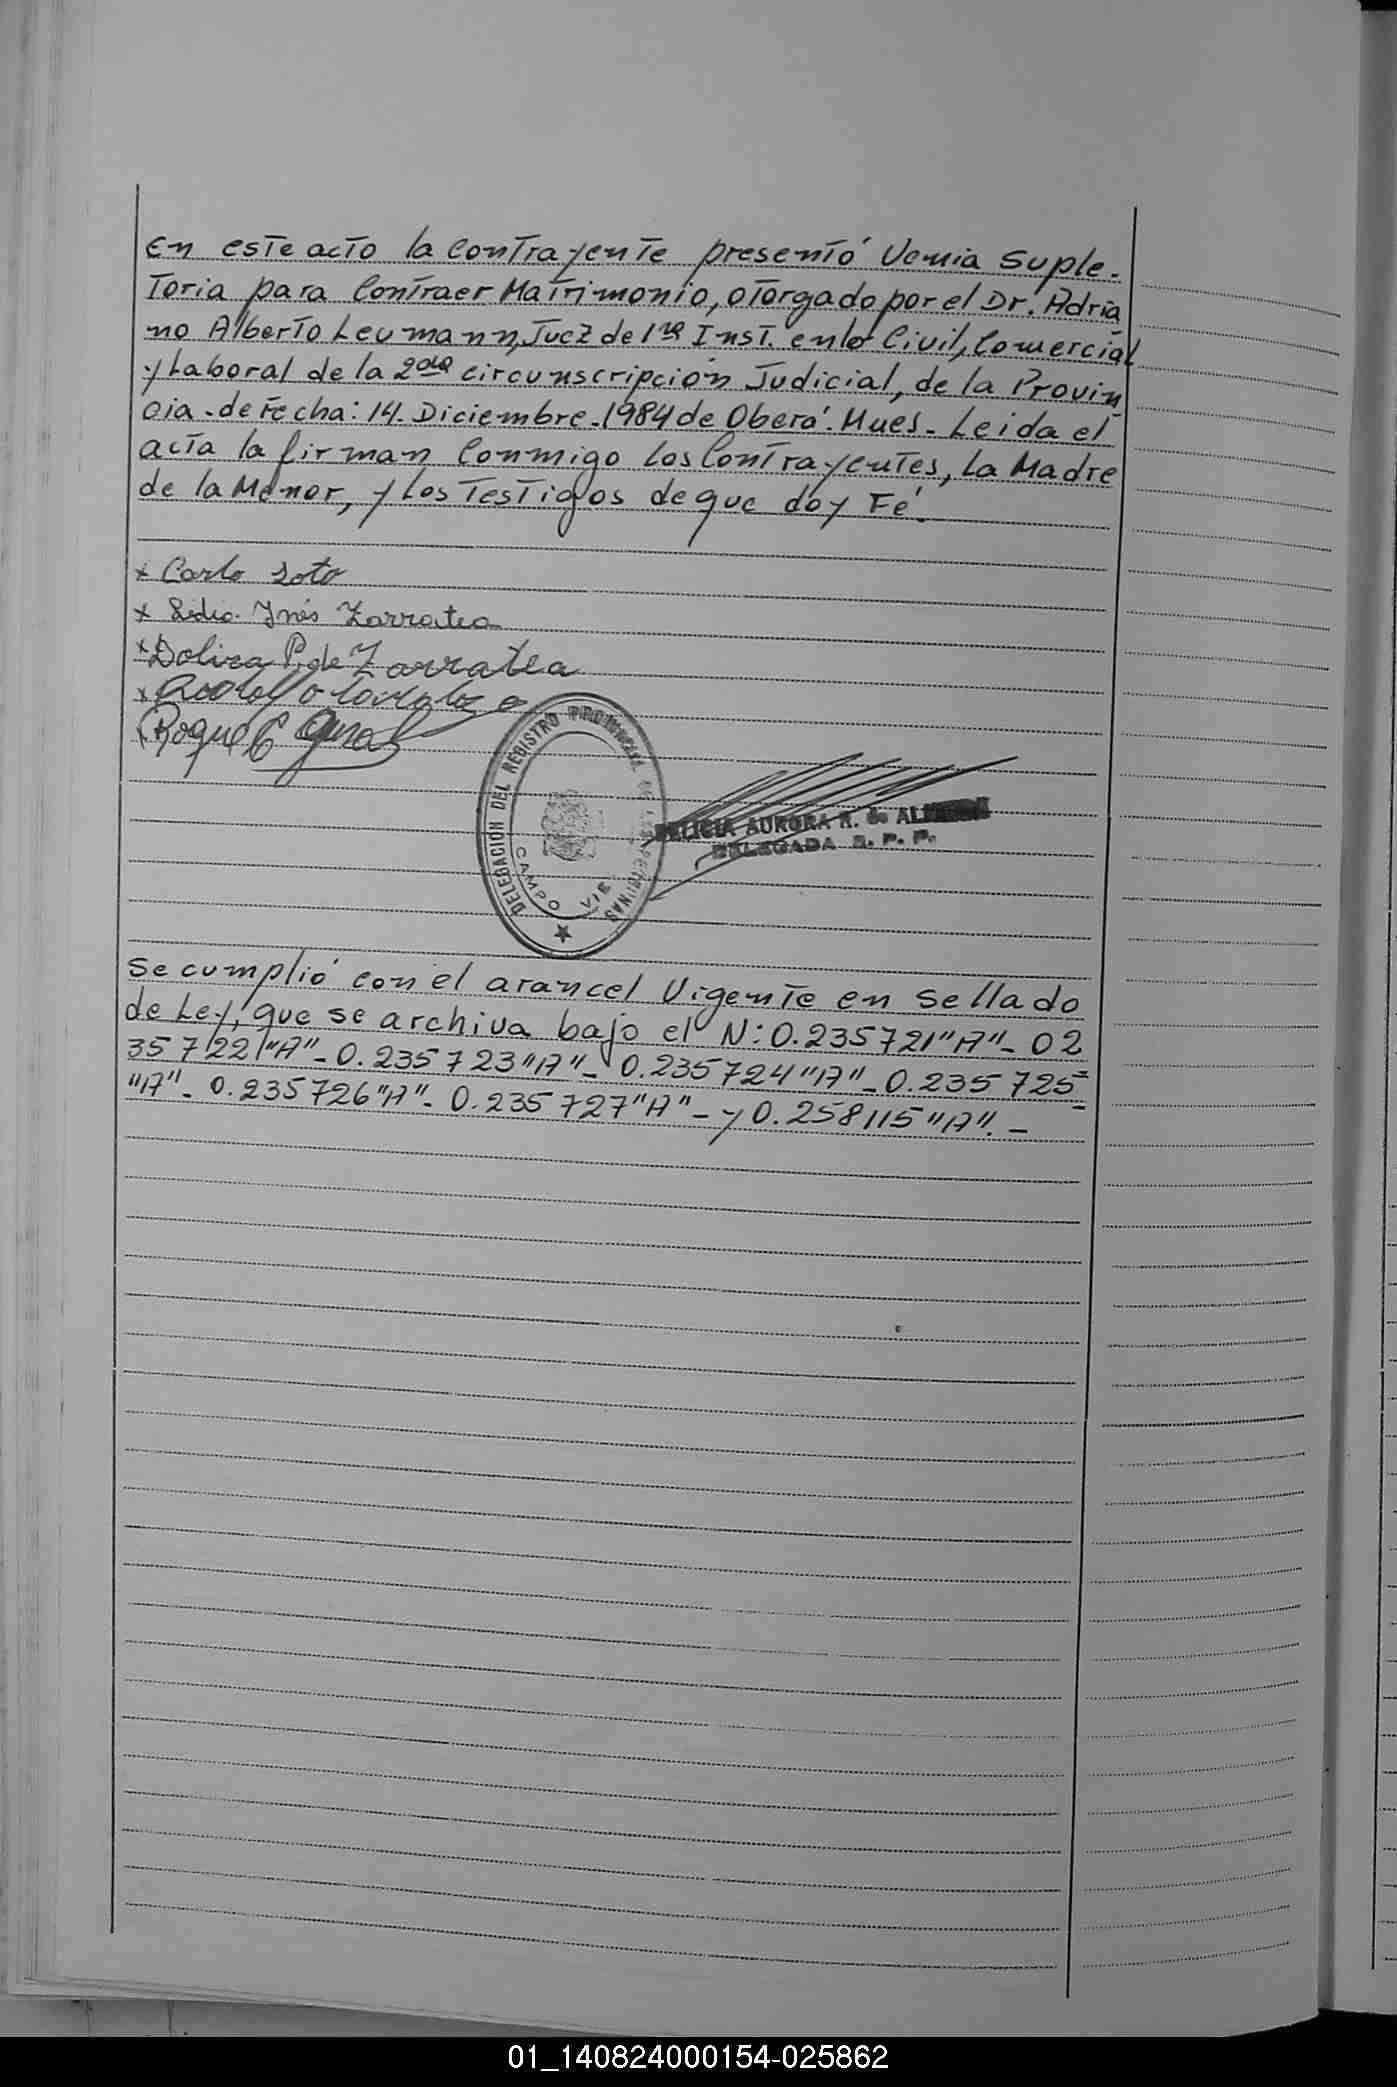 En este acto la Contrayente presentó Vemia Suple-
Toria para Contraer Matrimonio, otorgado por el Dr. Adria
no Alberto Leumann, Juez de 1ra Inst. en lo Civil, Comercial
y Laboral de la 2da circunscripción Judicial, de la Provin
cia - de fecha: 14. Diciembre. 1984 de Oberá. Mnes. Leida el
acta la firman Conmigo Los Contrayentes, La Madre
de la Menor, y Los Testigos de que doy Fé.
x Carlo Soto
x Lidia Inés Zarratea
x Dolira P. de Zarratea
x
Roque
DELEGACION DEL REGISTRO PROVINCIAL DE LAS PERSONAS
CAMPO VIE
AURORA R. de
DELEGADA R. P. P.
Se cumplió con el arancel Vigente en Sellado
de Ley, que se archiva bajo el N: 0.235721"A"- 02
35722"A"- 0.235723"A"- 0.235724"A"- 0.235725=
"A"- 0.235726"A"- 0.235727"A"- y 0.258115"A".-
01_140824000154-025862